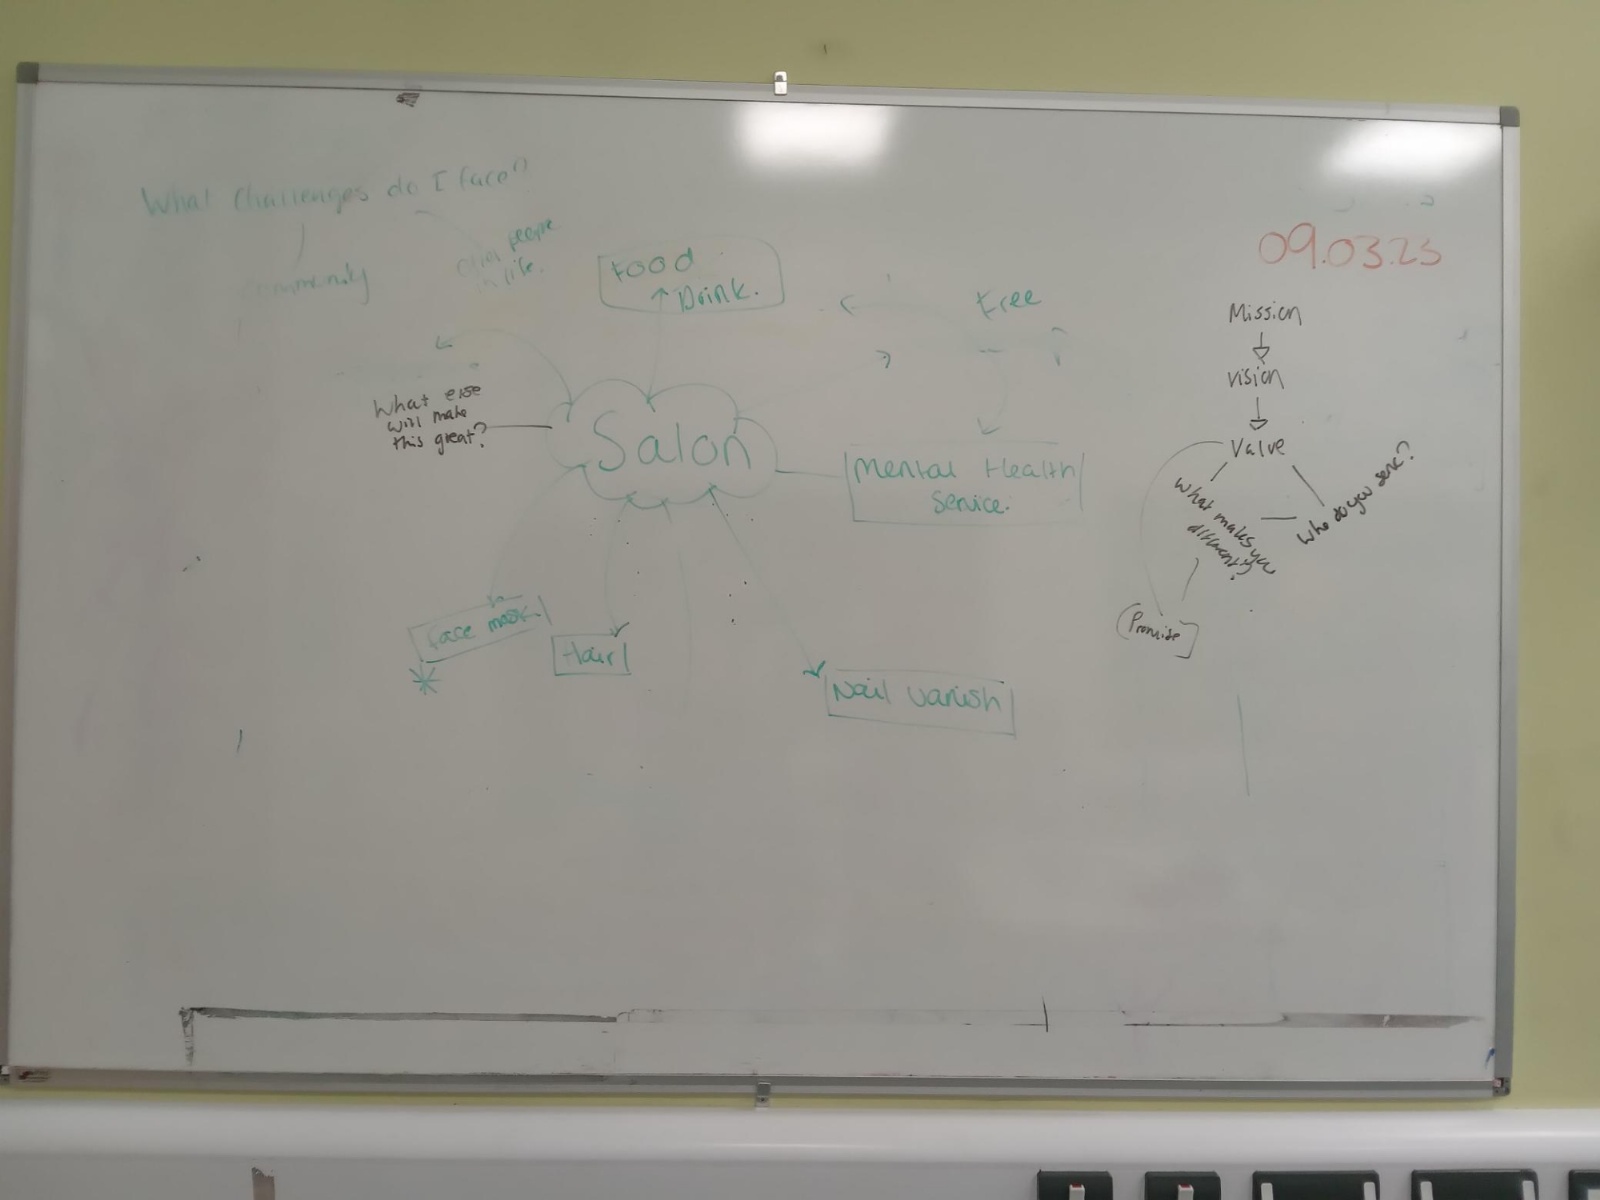 What Challenges do I face?
people
in life.
Food
Drink.
Free
09.03.23
Mission
Vision
Value
What makes you
different?
Who do you serve?
[Promise]
What else
will make
this great?
Salon
Mental Health
Service.
Face mask.
Hair
Nail Varnish